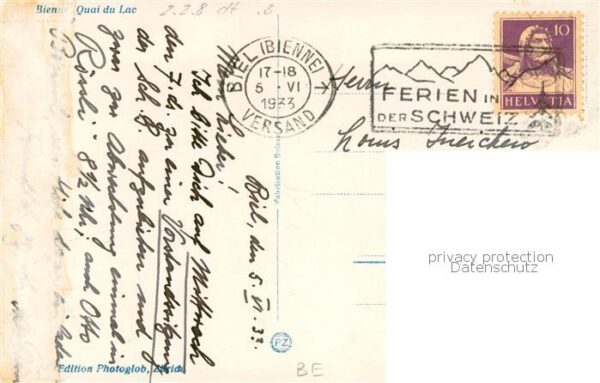 Bienne Quai du Lac
2.2.8 dt .3
BIEL (BIENNE)
17-18
5 VI
1933
VERSAND
FERIEN IN
DER SCHWEIZ
10
HELVETIA
Herrn
Louis
privacy protection
Datenschutz
Biel, den 5. VI. 33.
Mein Lieber!
Ich bitte Dich auf Mittwoch
den 7. d. zu einer Vorstandsitzung
der Sch aufzubieten und
zwar zur Abwechslung einmal im
"Rösli" 8½ Uhr, auch Otto
Fabrikation Suisse
PZ
BE
Edition Photoglob, Zürich